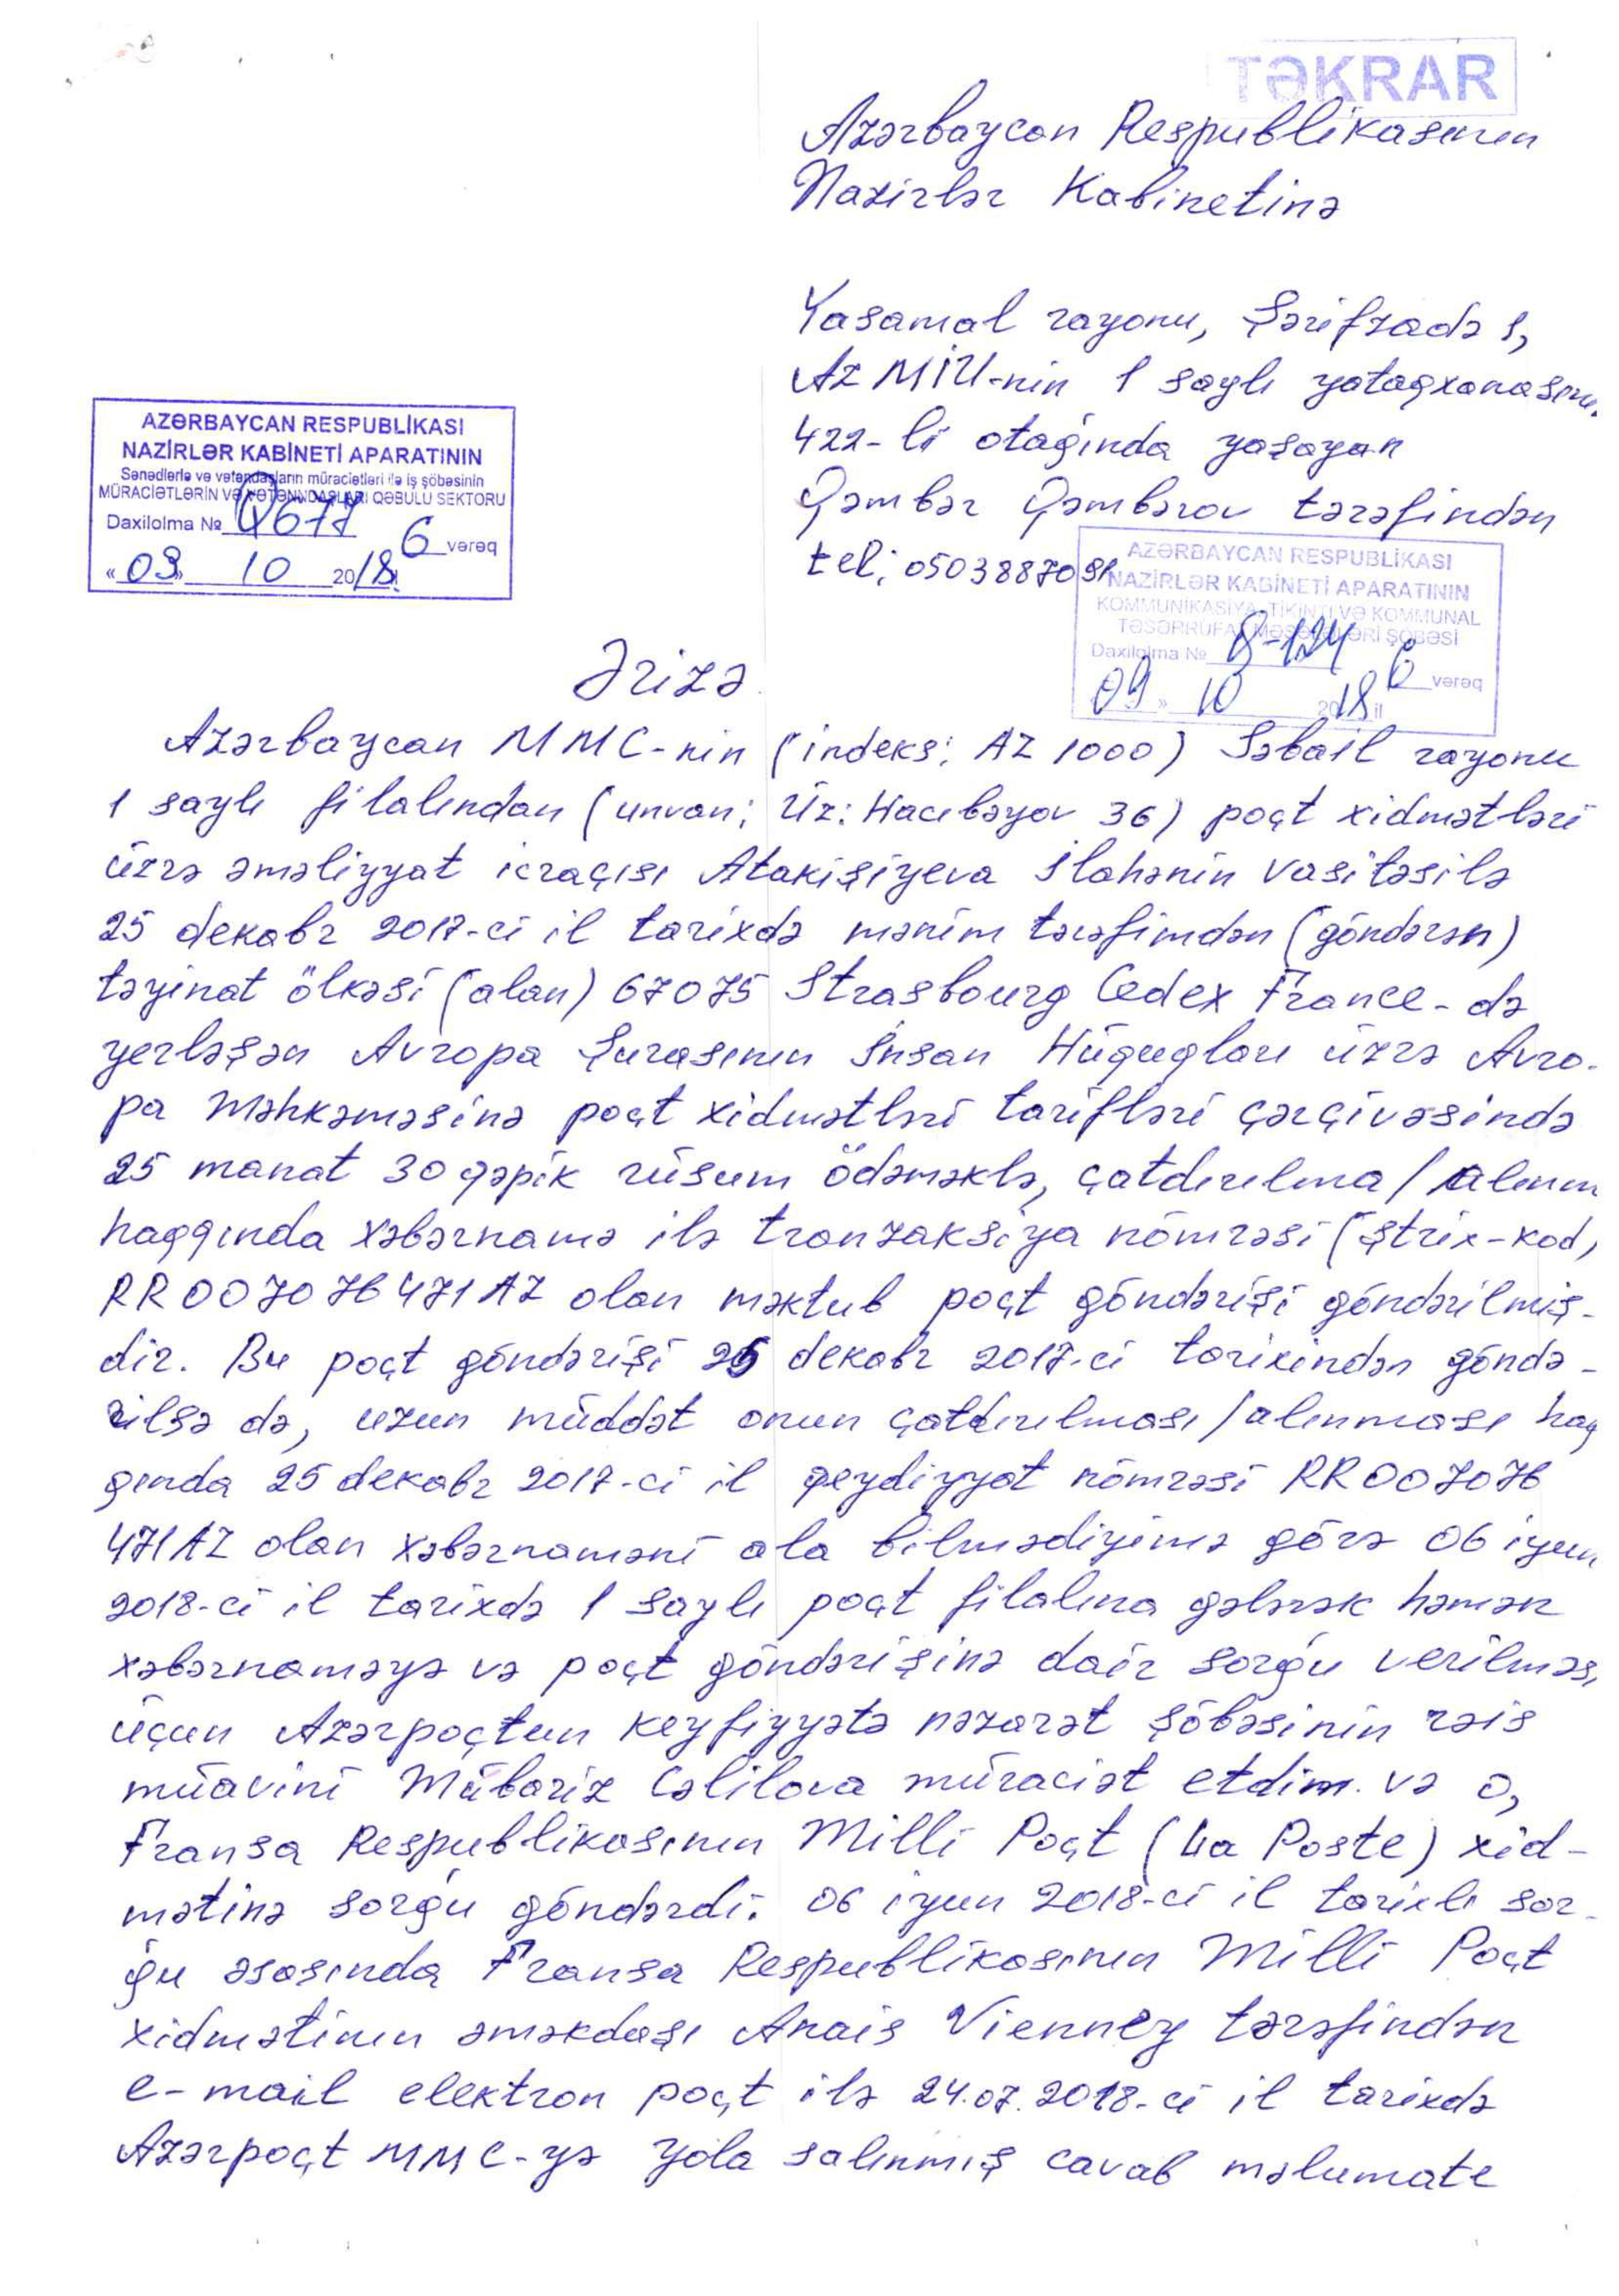 TƏKRAR
Azərbaycan Respublikasının
Nazirlər Kabinetinə
Yasamal rayonu, Şərifzadə 1,
AZ MİU-nin 1 saylı yataqxanasını
422-li otağında yaşayan
Qəmbər Qəmbərov tərəfindən
tel: 0503887091
AZƏRBAYCAN RESPUBLİKASI
NAZİRLƏR KABİNETİ APARATININ
Sənədlərlə və vətəndaşların müraciətləri ilə iş şöbəsinin
MÜRACİƏTLƏRİN VƏ VƏTƏNNDAŞLARI QƏBULU SEKTORU
Daxilolma № Q677
6 vərəq
« 09 » 10 2018
AZƏRBAYCAN RESPUBLİKASI
NAZİRLƏR KABİNETİ APARATININ
KOMMUNİKASİYA, TİKİNTİ VƏ KOMMUNAL
TƏSƏRRÜFAT MƏSƏLƏLƏRİ ŞÖBƏSİ
Daxilolma № 8-124
6 vərəq
09 » 10 2018 il
Ərizə
Azərbaycan MMC-nin (indeks: AZ 1000) Səbail rayonu
1 saylı filalından (unvan: Üz: Hacıbəyov 36) poçt xidmətləri
üzrə əməliyyat icraçısı Atakişiyeva İlahənin vasitəsilə
25 dekabr 2017-ci il tarixdə mənim tərəfimdən (göndərən)
təyinat ölkəsi (alan) 67075 Strasbourg Cedex France-də
yerləşən Avropa Şurasının İnsan Hüquqları üzrə Avro-
pa Məhkəməsinə poçt xidmətləri tarifləri çərçivəsində
25 manat 30 qəpik rüsum ödəməklə, çatdırılma/alınm
haqqında xəbərnamə ilə tranzaksiya nömrəsi (ştrix-kod)
RR007076471AZ olan məktub poçt göndərişi göndərilmiş-
dir. Bu poçt göndərişi 25 dekabr 2017-ci tarixindən göndə-
rilsə də, uzun müddət onun çatdırılması/alınması haq
qında 25 dekabr 2017-ci il qeydiyyat nömrəsi RR007076
471AZ olan xəbərnaməni ala bilmədiyimə görə 06 iyun
2018-ci il tarixdə 1 saylı poçt filalına gələrək həmən
xəbərnaməyə və poçt göndərişinə dair sorğu verilməs
üçün Azərpoçtun keyfiyyətə nəzarət şöbəsinin rəis
müavini Mübariz Cəlilova müraciət etdim. və o,
Fransa Respublikasının Milli Poçt (La Poste) xid-
mətinə sorğu göndərdi. 06 iyun 2018-ci il tarixli sor-
ğu əsasında Fransa Respublikasının Milli Poçt
xidmətinin əməkdaşı Anais Vienney tərəfindən
e-mail elektron poçt ilə 24.07.2018-ci il tarixdə
Azərpoçt MMC-yə yola salınmış cavab məlumatı